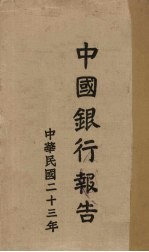 中國銀行報告
中華民國二十三年